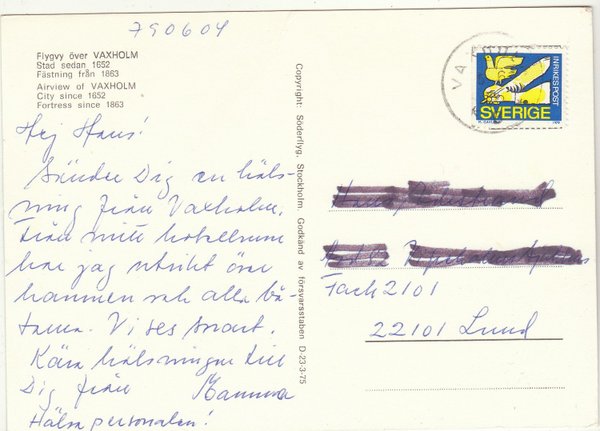 790604
Flygvy över VAXHOLM
Stad sedan 1652
Fästning från 1863
Airview of VAXHOLM
City since 1652
Fortress since 1863
Hej Hans!
Sänder Dig en häls-
ning från Vaxholm.
Från mitt hotellrum
har jag utsikt över
hamnen och alla bå-
tarna. Vi ses snart.
Kära hälsningar till
Dig från Mamma
Hälsa personalen!
Copyright: Söderflyg, Stockholm Godkänd av försvarsstaben D-23-3-75
INRIKESPOST
SVERIGE
Fack 2101
22101 Lund